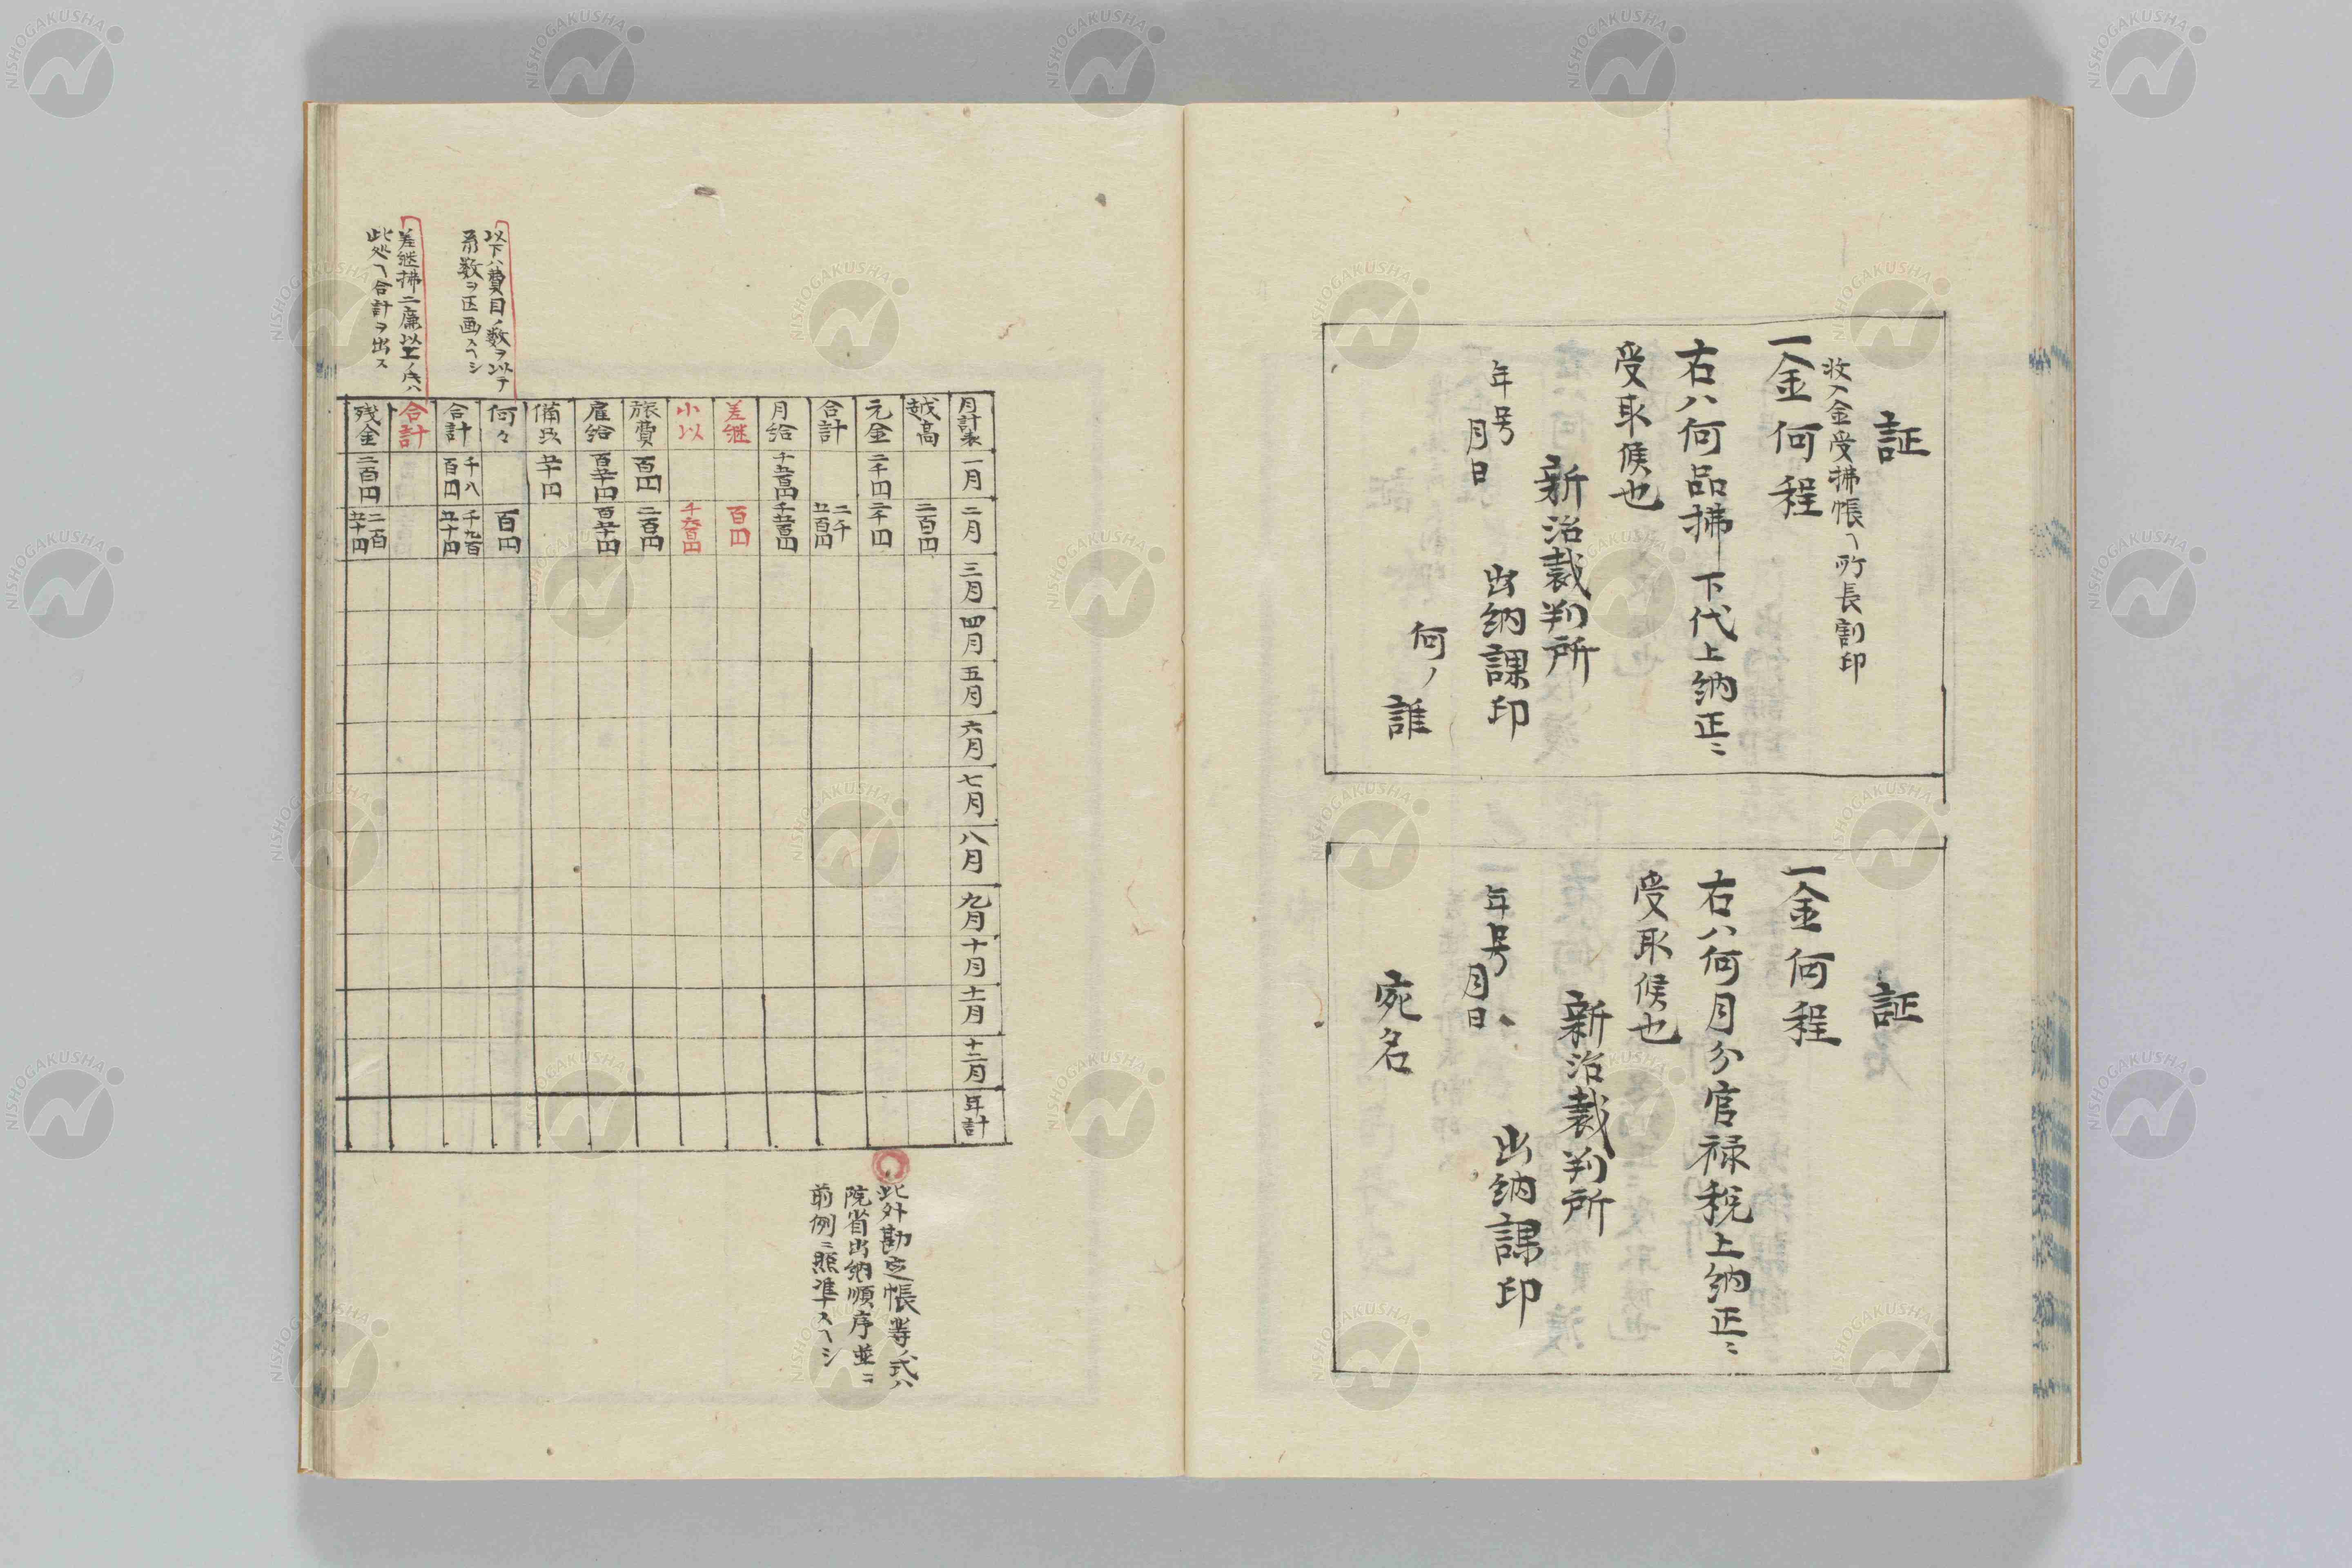 証
収入金受拂帳ヘ所長割印
一金何程
右ハ何品拂下代上納正ニ
受取候也
新治裁判所
出納課印
年号
月日
何ノ誰
証
一金何程
右ハ何月分官禄税上納正ニ
受取候也
新治裁判所
出納課印
年号
月日
宛名
以下ハ費目ノ数ヲ以テ
系数ヲ区画スヘシ
差継拂二廉以上ノ片ハ
此処ヘ合計ヲ出ス
月計表 一月 二月 三月 四月 五月 六月 七月 八月 九月 十月 十一月 十二月 年計
越高 二百円
元金 二千円 二千円
合計 二千五百円
月給 千五百円 千五百円
差継 百円
小以 千六百円
旅費 百円 二百円
雇給 百五十円 百五十円
備品 五十円
何々 百円
合計 千八百円 千九百五十円
合計
残金 二百円 二百五十円
此外勘定帳等ノ式ハ
院省出納順序並ニ
前例ニ照準スヘシ
NISHOGAKUSHA